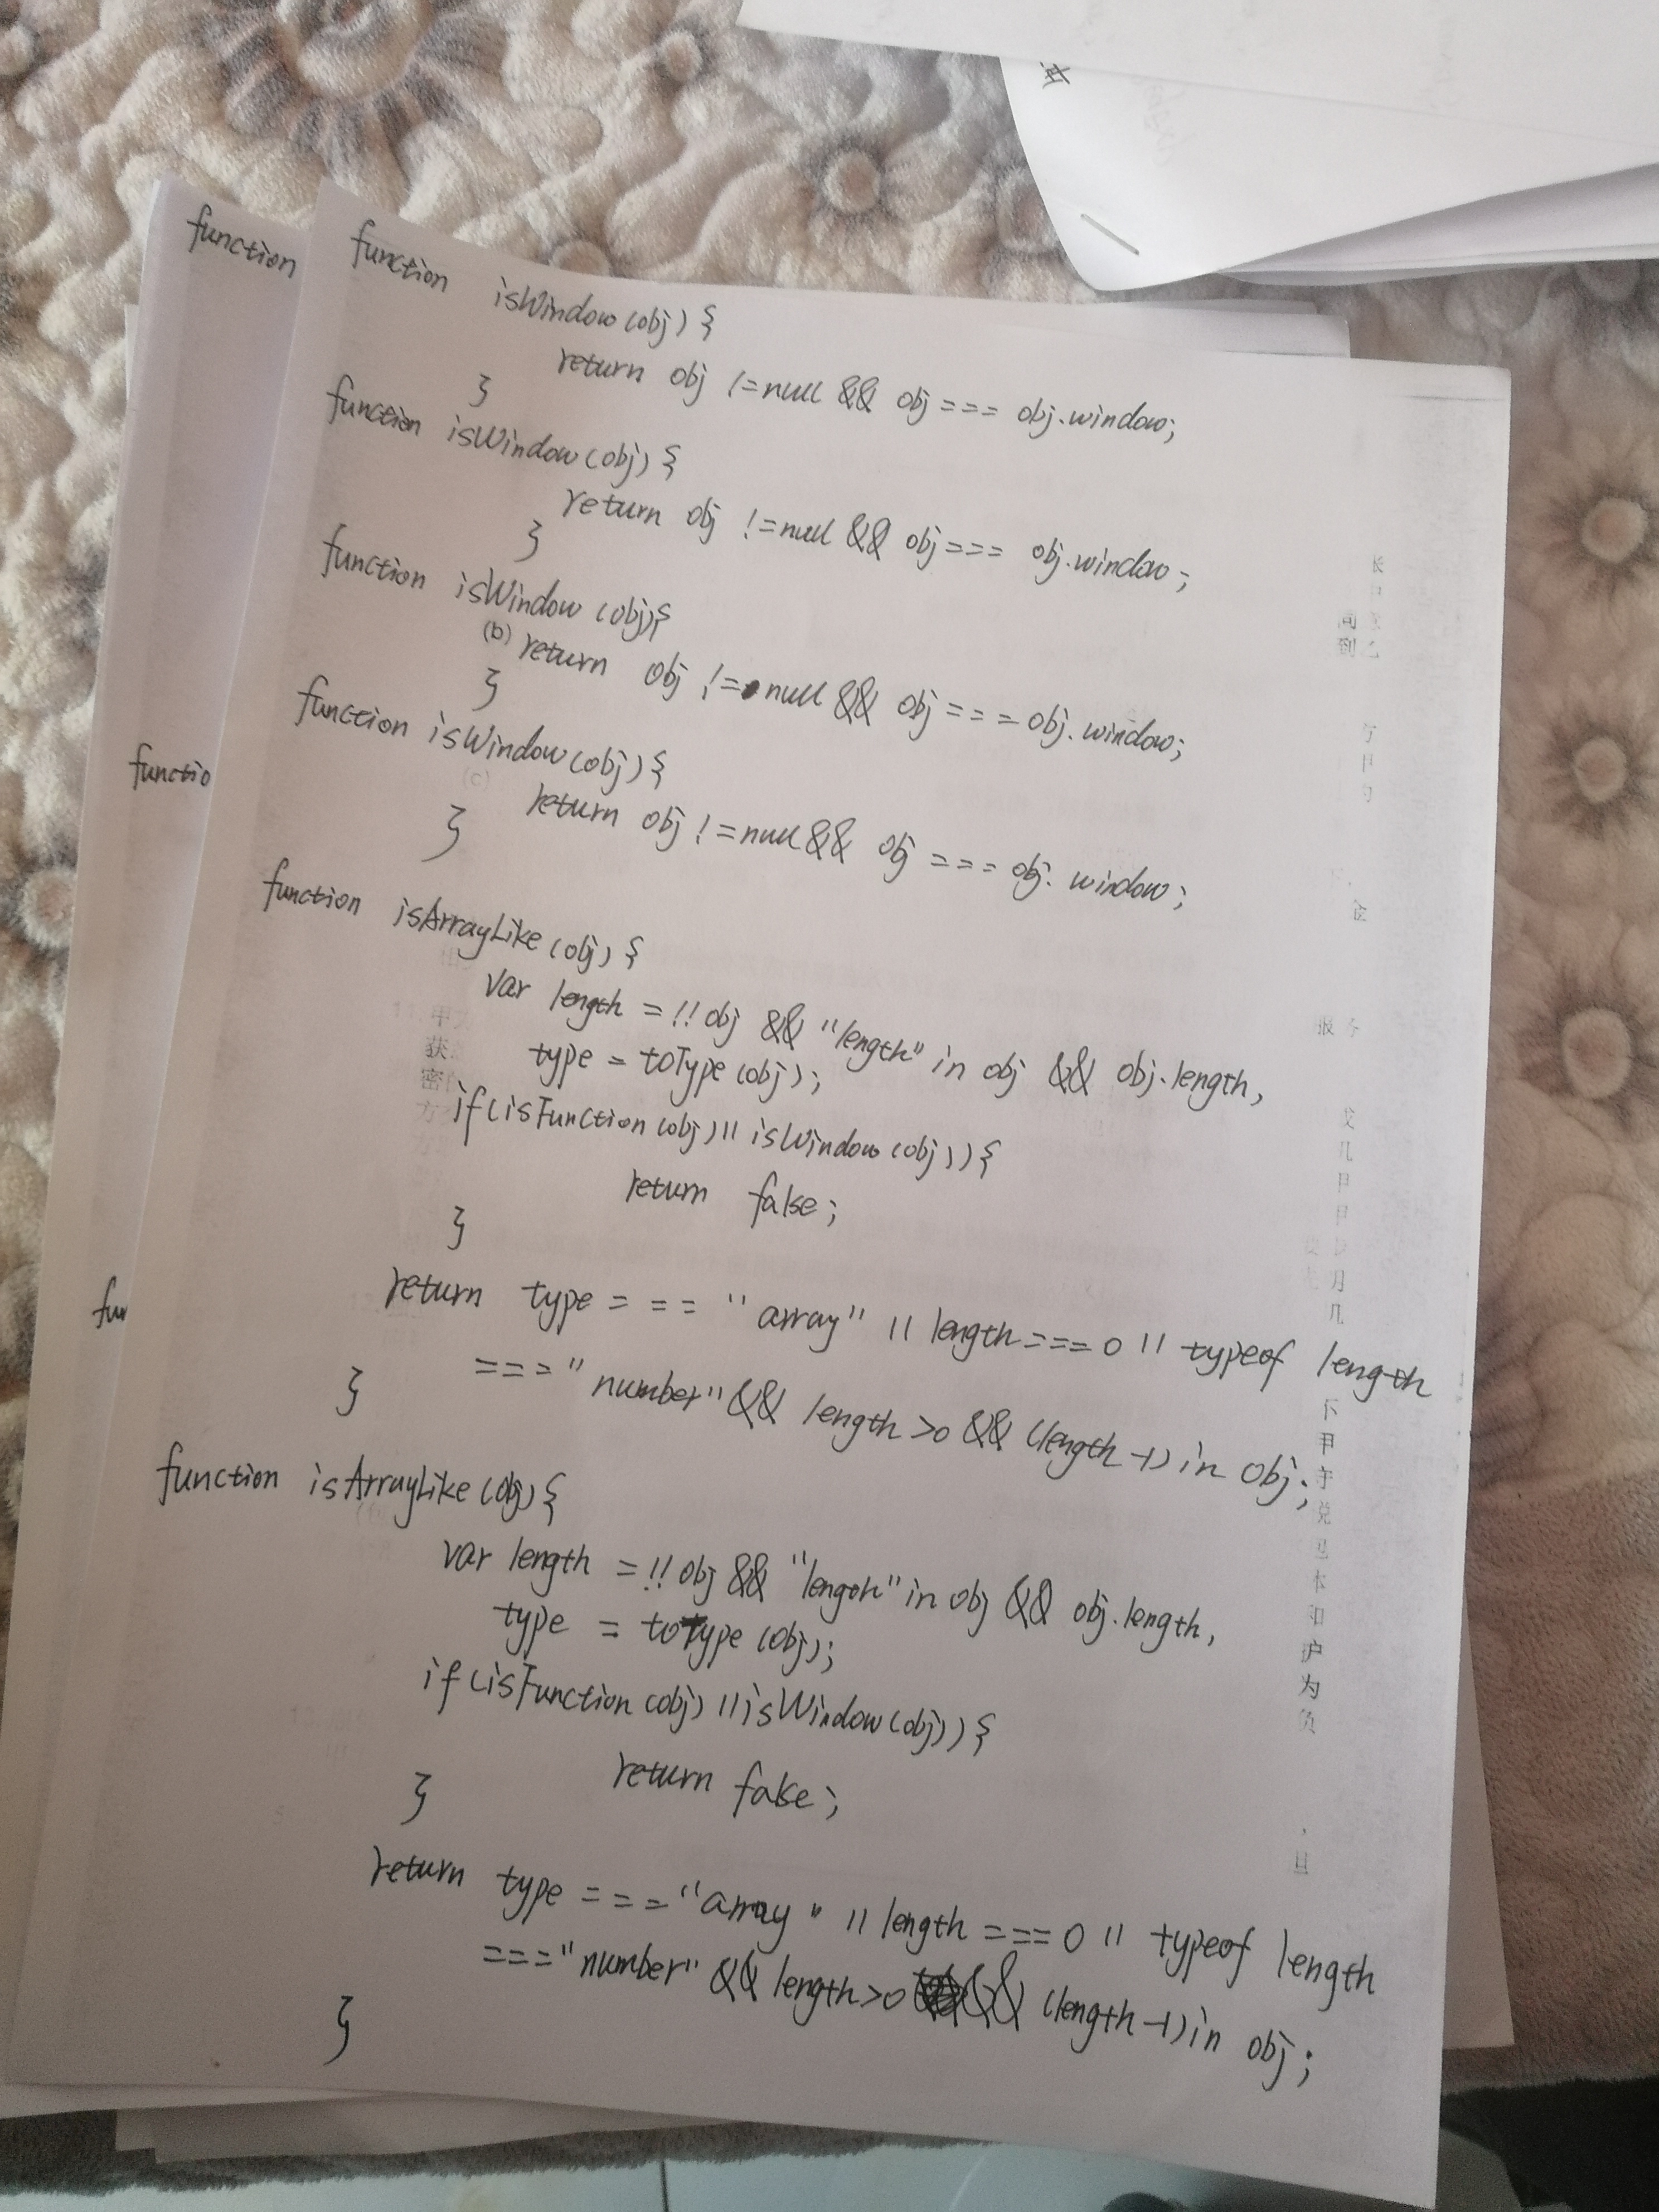 function
function isWindow(obj) {
return obj != null && obj === obj.window;
}
function isWindow(obj) {
return obj != null && obj === obj.window;
}
function isWindow(obj){
(b) return obj != null && obj === obj.window;
}
function isWindow(obj) {
(c)
return obj != null && obj === obj.window;
}
functio
function isArrayLike(obj) {
var length = !! obj && "length" in obj && obj.length,
type = toType(obj);
if(isFunction(obj) || isWindow(obj)){
return false;
}
return type === "array" || length === 0 || typeof length
=== "number" && length > 0 && (length - 1) in obj;
}
fun
function isArrayLike(obj) {
var length = !! obj && "length" in obj && obj.length,
type = toType(obj);
if(isFunction(obj) || isWindow(obj)) {
return false;
}
return type === "array" || length === 0 || typeof length
=== "number" && length > 0 && (length - 1) in obj;
}